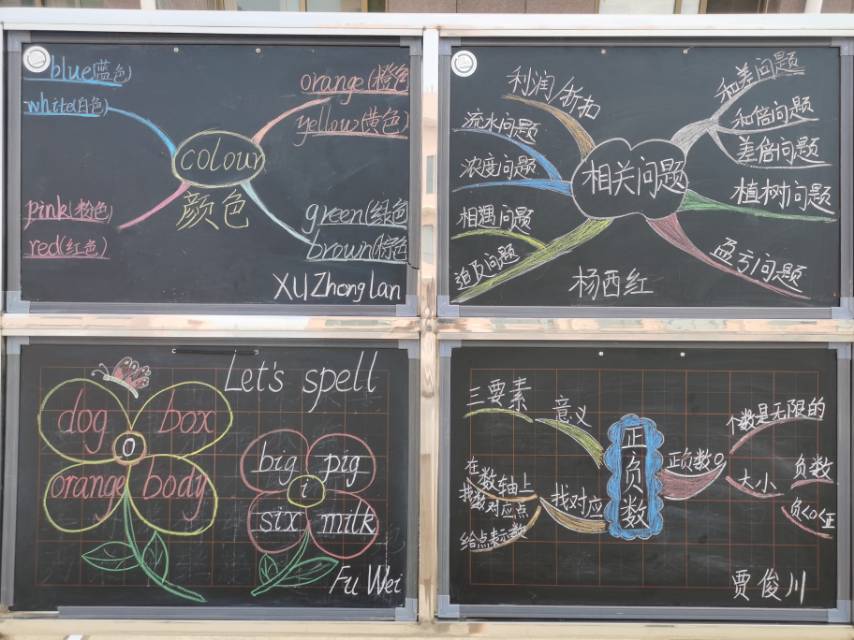 blue(蓝色)
white(白色)
pink(粉色)
red(红色)
colour
颜色
orange(橙色
yellow(黄色)
green(绿色
brown(棕色
XU Zhonglan
利润/折扣
流水问题
浓度问题
相遇问题
追及问题
相关问题
和差问题
和倍问题
差倍问题
植树问题
盈亏问题
杨西红
Let's spell
dog
box
o
orange
body
big
pig
i
six
milk
Fu Wei
三要素
意义
在数轴上
找数对应点
给点表示数
找对应
正负数
正负数0
个数是无限的
大小
负数
负<0<正
贾俊川